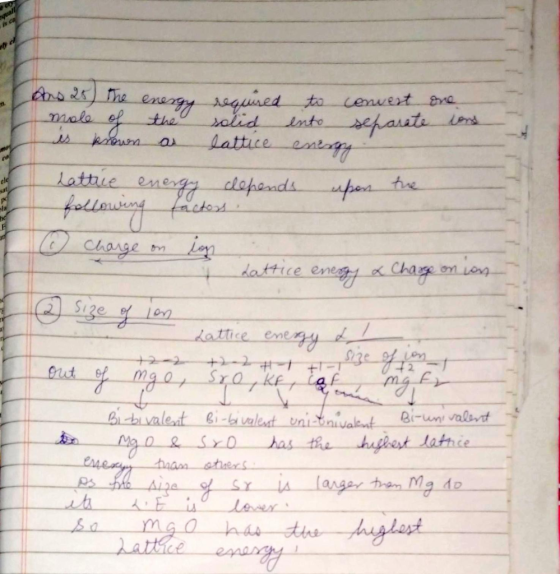 Ans 25) The energy required to convert one
mole of the solid into separate ions
is known as lattice energy.
Lattice energy depends upon the
following factors.
① Charge on ion
Lattice energy ∝ Charge on ion
② Size of ion
Lattice energy ∝ 1
Size of ion
+2 -2 +2 -2 +1 -1 +1 -1 +2 -1
Out of MgO, SrO, KF, F, MgF2
Bi-bivalent Bi-bivalent uni-univalent Bi-univalent
MgO & SrO has the highest lattice
energy than others.
As the size of Sr is larger than Mg so
its L.E is lower.
So MgO has the highest
Lattice energy!